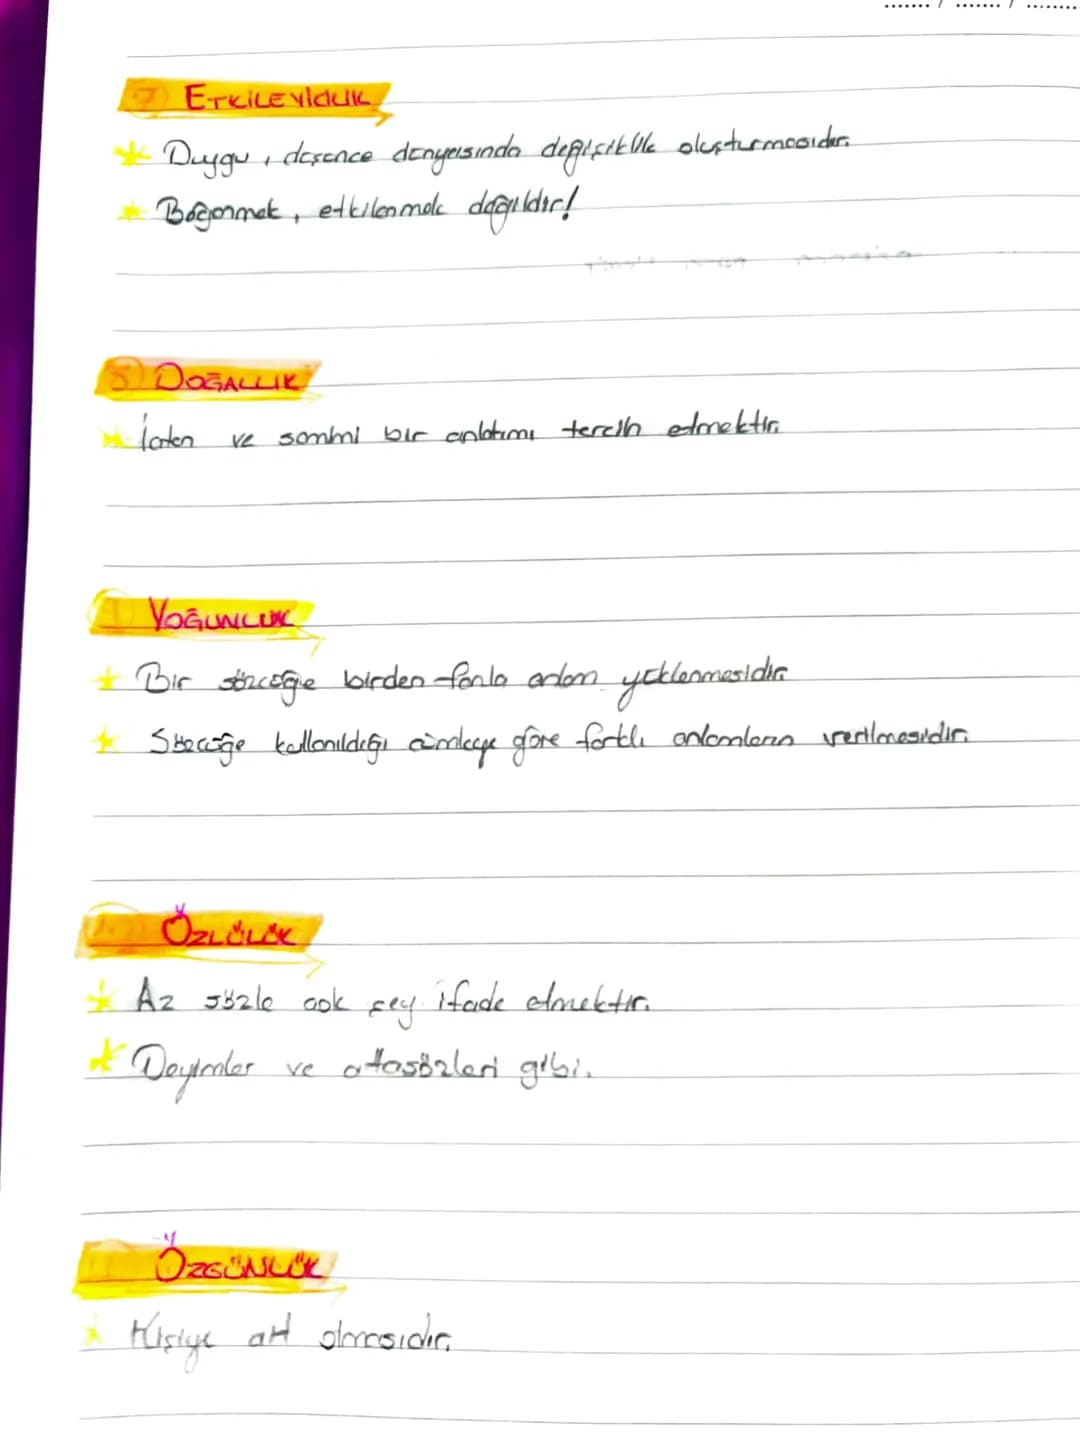 7 ETKİLEYİCİLİK
Duygu, düşünce dünyasında değişiklik oluşturmasıdır.
Beğenmek, etkilenmek değildir!
8 DOĞALLIK
İçten ve samimi bir anlatımı tercih etmektir.
9 YOĞUNLUK
Bir sözcüğe birden fazla anlam yüklenmesidir.
Sözcüğe kullanıldığı cümleye göre farklı anlamların verilmesidir.
ÖZLÜLÜK
Az sözle çok şey ifade etmektir.
Deyimler ve atasözleri gibi.
ÖZGÜNLÜK
Kişiye ait olmasıdır.